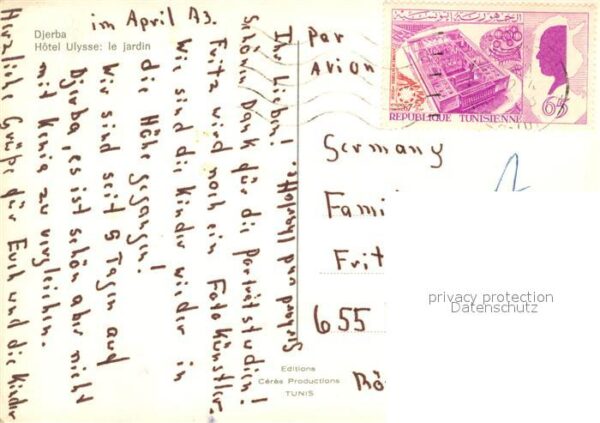 Djerba
Hôtel Ulysse: le jardin
im April 73.
Ihr Lieben!
Schönen Dank für di Porträtstudien!
Fritz wird noch ein Foto Künstler.
Wie sind die Kinder wieder in
die Höhe gegangen!
Wir sind seit 5 Tagen auf
Djerba, es ist schön aber nicht
mit Kenia zu vergleichen.
Herzliche Grüße für Euch und die Kinder
und
Par
Avion
REPUBLIQUE TUNISIENNE
65
Germany
Fami
Frit
655
Editions
Cérès Productions
TUNIS
privacy protection
Datenschutz